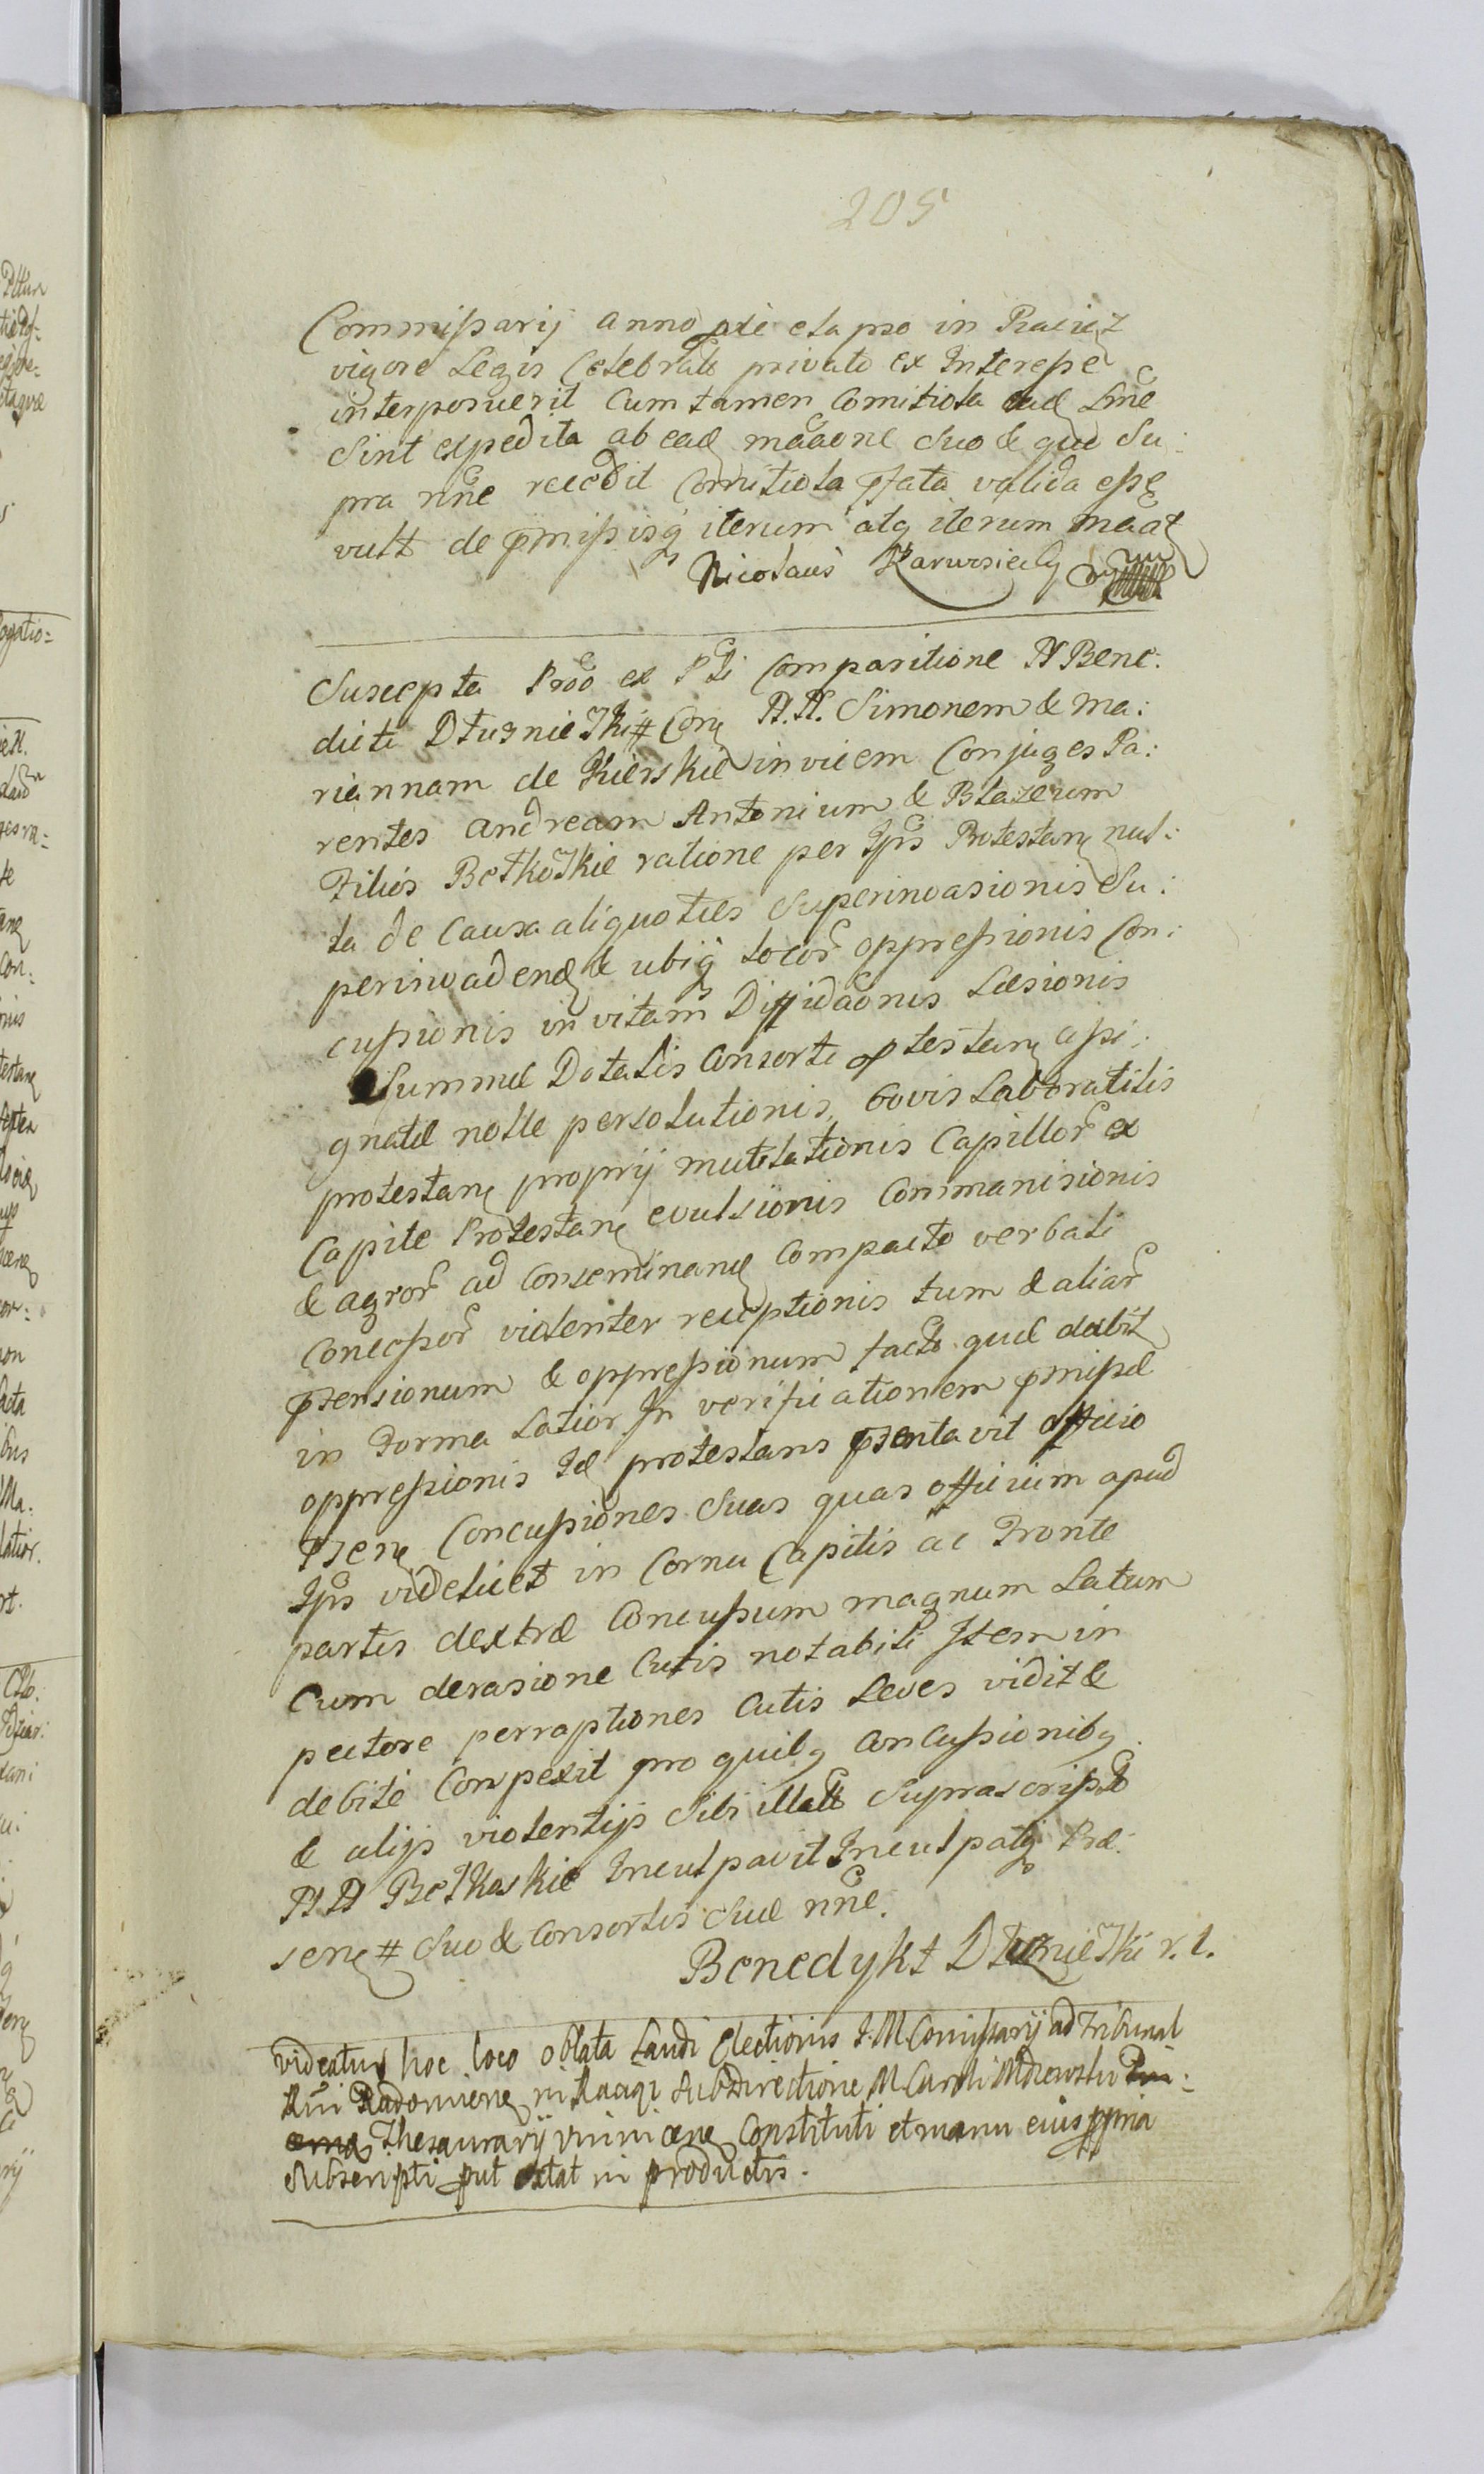 205
Commissarij anno pte elapso in Raciąż
vigore Legis Celebrato privato ex Interesse
interposuerit Cum tamen Comitiola eade Lme
Sint expedita ab ead maaone suo & quo Su:
pra nne recedit Comitiola pfata valida esse
vult de pmissisq iterum atq iterum maat
Nicolaus Karwosiecky
Suscepta Prõo ex Pti Comparitione N Bene:
dicti Dłuzniewski # Conq N.N. Simonem & Ma:
riannam de Kierskie invicem Conjuges Pa:
rentes Andream Antonium & Blazeum
Filios Betkoskie ratione per Ipos Protestanq nul:
la de Causa aliquoties Superinvasionis Su:
perinvadend & ubiq locor oppressionis Con:
cussionis in vitam Diffidaonis Læsionis
Summæ Dotalis Consorti ptestanq assi:
gnatæ nolle persolutionis, bovis Laboratilis
protestanq proprij mutilationis Capillor ex
Capite Protestanq evulsionis Commanisionis
& agror ad Conseminanq Compacto verbali
Concessor violenter receptionis tum & aliar
ptensionum & oppressionum facto quæ dabit
in Forma Latior In verificationem pmissæ
oppressionis Id protestans psentavit officio
Psenq Concussiones Suas quas officium apud
Ips videlicet in Cornu Capitis ac Fronte
partis dextræ Concussum magnum Latum
Cum derasione Cutis notabili Item in
pectore perraptiones Cutis Leves vidit &
debite Conspexit pro quibq Concussionibq
& alijs violentijs Sibi illatis Suprascripto
NN Betkoskie Inculpavit Inculpatq Præ:
senq # Suo & Consortis Suæ nne.
Benedykt Dłuzniewski r. l.
videatur hoc loco oblata Laudi Electionis I.M. Comissarij ad Tribunal
Rni Radomienq in Raciąż sub directione M Caroli Mdzewski
Thesaurarij Constituti et manu eius ppria
subscripti put extat in productis.